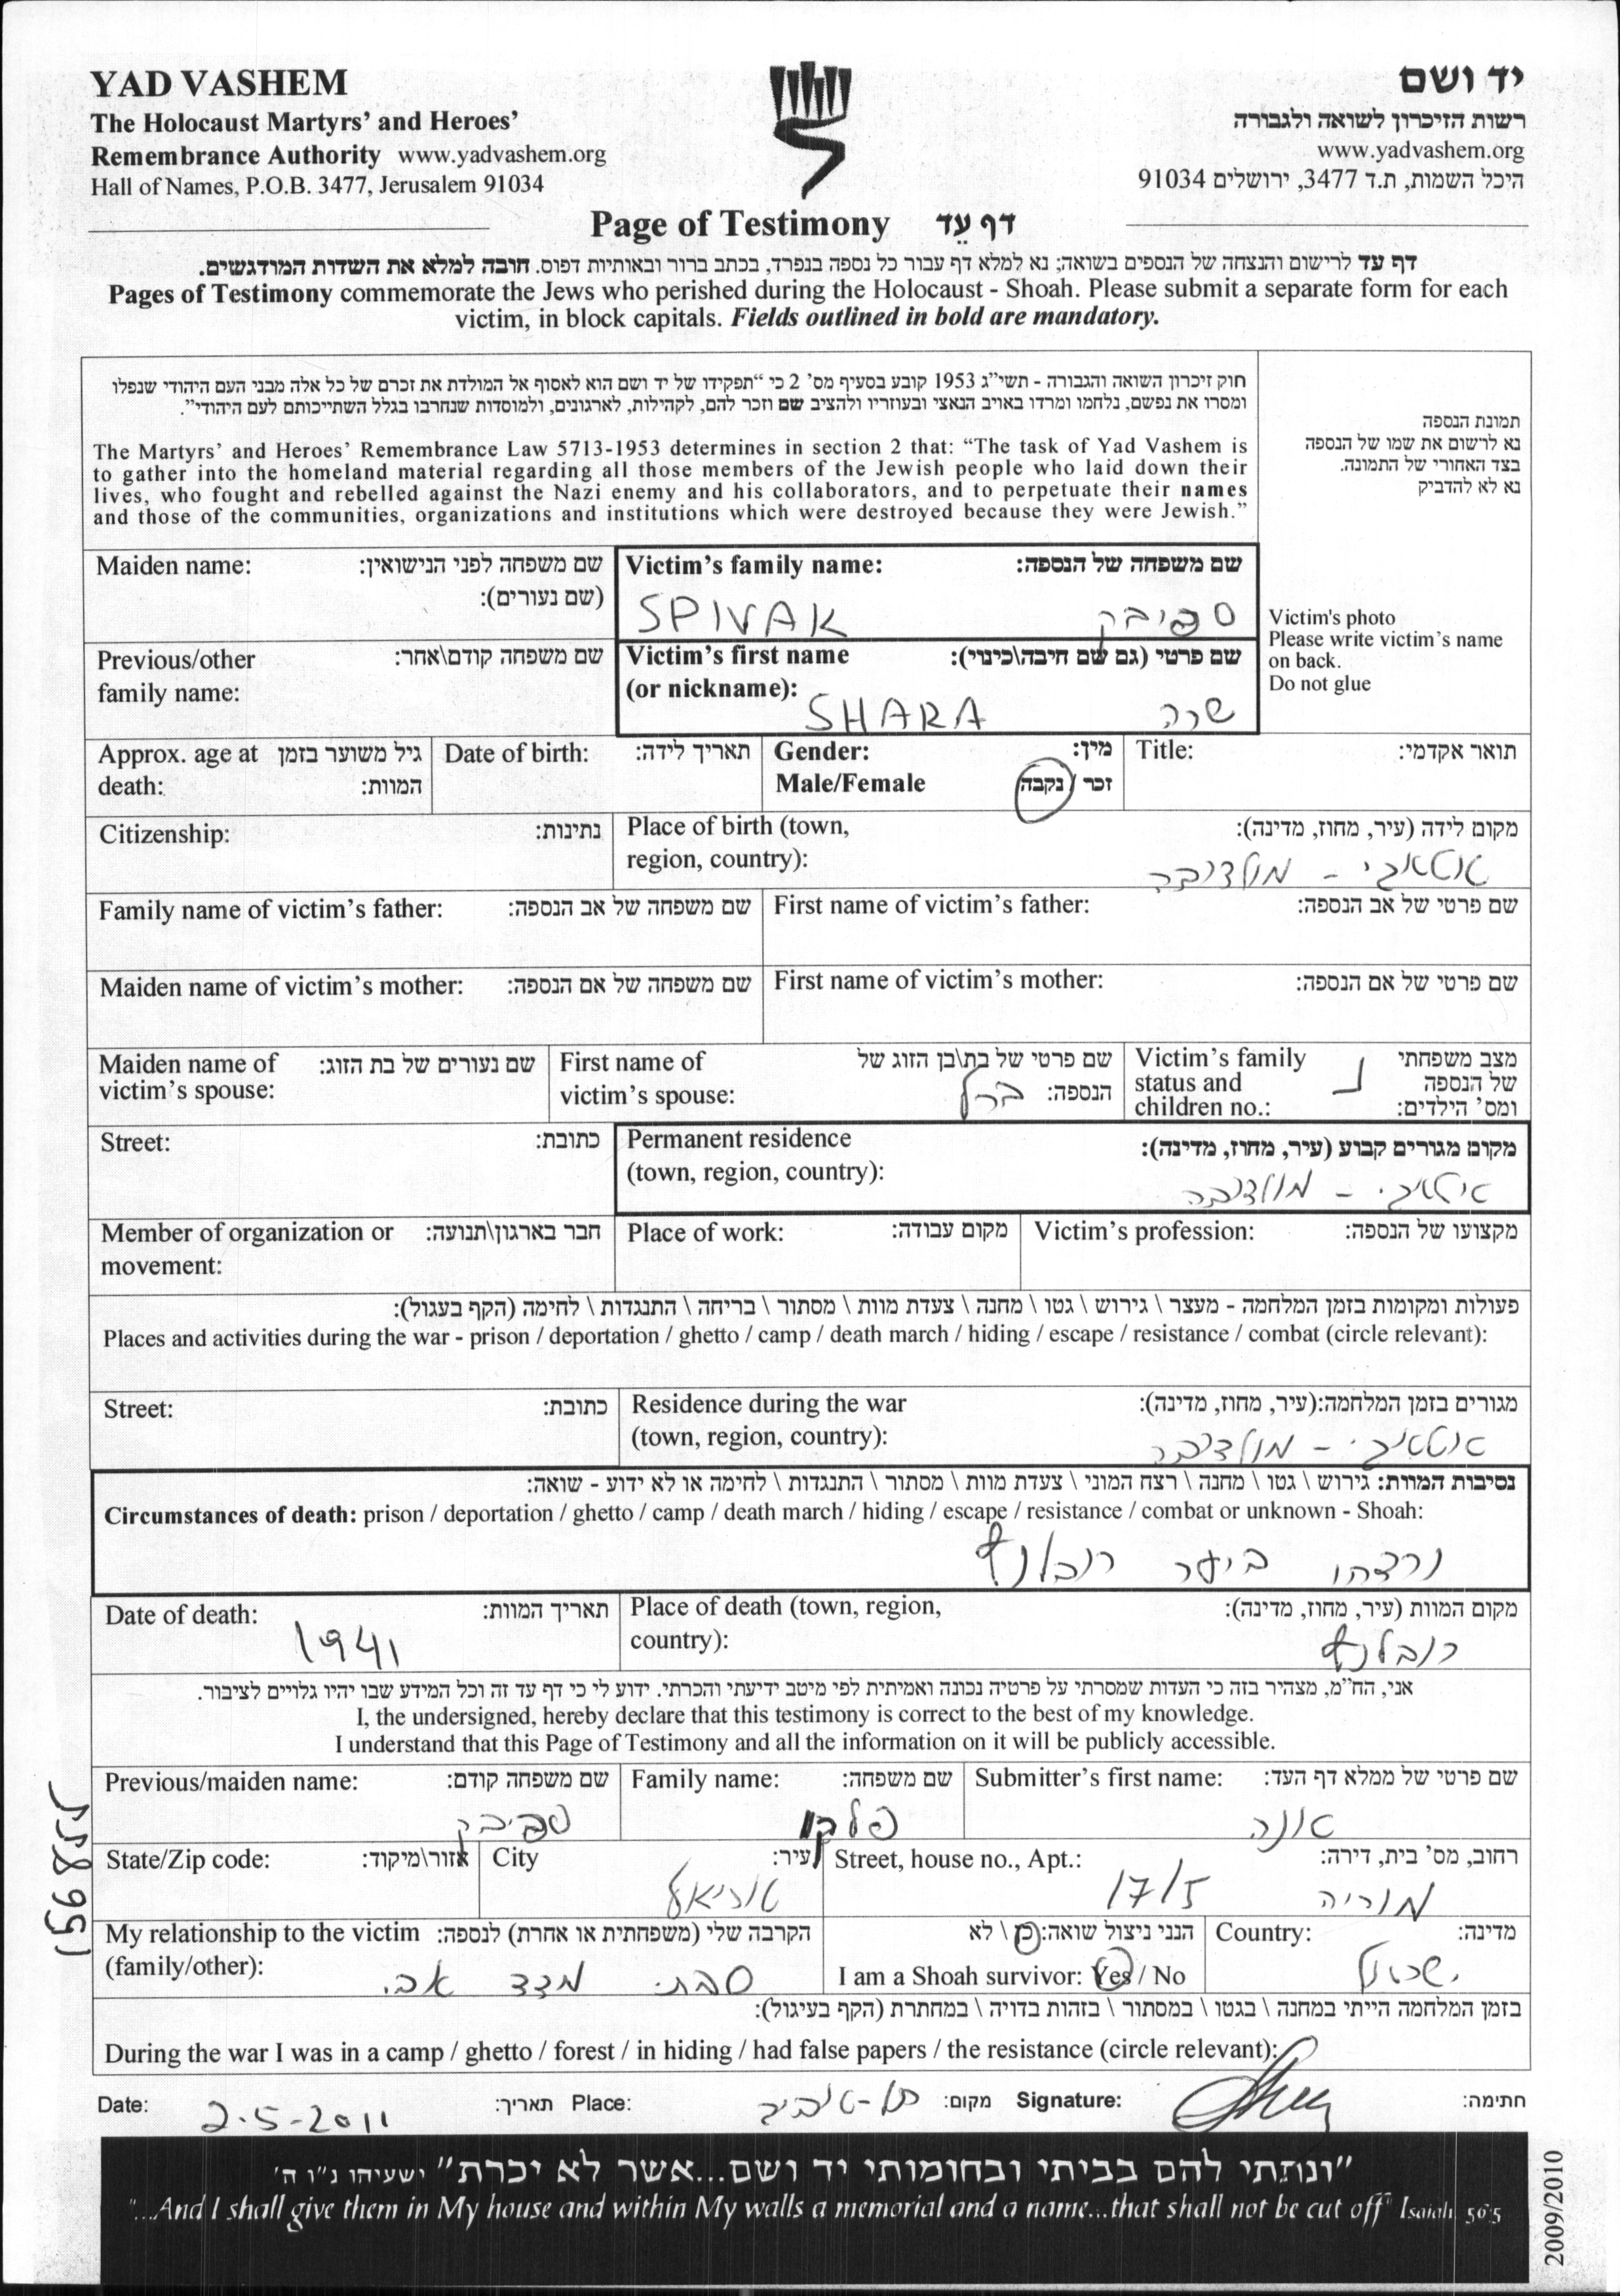 YAD VASHEM
The Holocaust Martyrs’ and Heroes’
Remembrance Authority www.yadvashem.org
Hall of Names, P.O.B. 3477, Jerusalem 91034
יד ושם
רשות הזיכרון לשואה ולגבורה
www.yadvashem.org
היכל השמות, ת.ד 3477, ירושלים 91034
Page of Testimony דף עֵד
דף עד לרישום והנצחה של הנספים בשואה; נא למלא דף עבור כל נספה בנפרד, בכתב ברור ובאותיות דפוס. חובה למלא את השדות המודגשים.
Pages of Testimony commemorate the Jews who perished during the Holocaust - Shoah. Please submit a separate form for each
victim, in block capitals. Fields outlined in bold are mandatory.
חוק זיכרון השואה והגבורה - תשי״ג 1953 קובע בסעיף מס' 2 כי “תפקידו של יד ושם הוא לאסוף אל המולדת את זכרם של כל אלה מבני העם היהודי שנפלו
ומסרו את נפשם, נלחמו ומרדו באויב הנאצי ובעוזריו ולהציב שם וזכר להם, לקהילות, לארגונים, ולמוסדות שנחרבו בגלל השתייכותם לעם היהודי”.
The Martyrs’ and Heroes’ Remembrance Law 5713-1953 determines in section 2 that: “The task of Yad Vashem is
to gather into the homeland material regarding all those members of the Jewish people who laid down their
lives, who fought and rebelled against the Nazi enemy and his collaborators, and to perpetuate their names
and those of the communities, organizations and institutions which were destroyed because they were Jewish.”
תמונת הנספה
נא לרשום את שמו של הנספה
בצד האחורי של התמונה.
נא לא להדביק
Victim's photo
Please write victim’s name
on back.
Do not glue
Maiden name: שם משפחה לפני הנישואין:
(שם נעורים):
Victim’s family name: שם משפחה של הנספה:
SPIVAK ספיבק
Previous/other שם משפחה קודם\אחר:
family name:
Victim’s first name שם פרטי (גם שם חיבה\כינוי):
(or nickname):
SHARA שרה
Approx. age at גיל משוער בזמן
death: המוות:
Date of birth: תאריך לידה:
Gender: מין:
Male/Female זכר / נקבה
Title: תואר אקדמי:
Citizenship: נתינות:
Place of birth (town, מקום לידה (עיר, מחוז, מדינה):
region, country):
אטאבי - מולדובה
Family name of victim’s father: שם משפחה של אב הנספה:
First name of victim’s father: שם פרטי של אב הנספה:
Maiden name of victim’s mother: שם משפחה של אם הנספה:
First name of victim’s mother: שם פרטי של אם הנספה:
Maiden name of שם נעורים של בת הזוג:
victim’s spouse:
First name of שם פרטי של בת\בן הזוג של
victim’s spouse: הנספה: ברל
Victim’s family מצב משפחתי
status and של הנספה
children no.: ומס' הילדים:
נ
Street: כתובת:
Permanent residence מקום מגורים קבוע (עיר, מחוז, מדינה):
(town, region, country):
אטאבי - מולדובה
Member of organization or חבר בארגון\תנועה:
movement:
Place of work: מקום עבודה:
Victim’s profession: מקצועו של הנספה:
פעולות ומקומות בזמן המלחמה - מעצר \ גירוש \ גטו \ מחנה \ צעדת מוות \ מסתור \ בריחה \ התנגדות \ לחימה (הקף בעגול):
Places and activities during the war - prison / deportation / ghetto / camp / death march / hiding / escape / resistance / combat (circle relevant):
Street: כתובת:
Residence during the war מגורים בזמן המלחמה:(עיר, מחוז, מדינה):
(town, region, country):
אטאבי - מולדובה
נסיבות המוות: גירוש \ גטו \ מחנה \ רצח המוני \ צעדת מוות \ מסתור \ התנגדות \ לחימה או לא ידוע - שואה:
Circumstances of death: prison / deportation / ghetto / camp / death march / hiding / escape / resistance / combat or unknown - Shoah:
נרצחו ביער
Date of death: תאריך המוות:
1941
Place of death (town, region, מקום המוות (עיר, מחוז, מדינה):
country):
אני, הח״מ, מצהיר בזה כי העדות שמסרתי על פרטיה נכונה ואמיתית לפי מיטב ידיעתי והכרתי. ידוע לי כי דף עד זה וכל המידע שבו יהיו גלויים לציבור.
I, the undersigned, hereby declare that this testimony is correct to the best of my knowledge.
I understand that this Page of Testimony and all the information on it will be publicly accessible.
Previous/maiden name: שם משפחה קודם:
ספיבק
Family name: שם משפחה:
Submitter’s first name: שם פרטי של ממלא דף העד:
אונה
State/Zip code: אזור\מיקוד:
City עיר:
אריאל
Street, house no., Apt.: רחוב, מס' בית, דירה:
מוריה 17/5
My relationship to the victim הקרבה שלי (משפחתית או אחרת) לנספה:
(family/other):
סבתי מצד אבי
הנני ניצול שואה: כן \ לא
I am a Shoah survivor: Yes / No
Country: מדינה:
ישראל
בזמן המלחמה הייתי במחנה \ בגטו \ במסתור \ בזהות בדויה \ במחתרת (הקף בעיגול):
During the war I was in a camp / ghetto / forest / in hiding / had false papers / the resistance (circle relevant):
Date: 2-5-2011 תאריך: Place: תל-אביב מקום: Signature: חתימה:
״ונתתי להם בביתי ובחומותי יד ושם...אשר לא יכרת״ ישעיהו נ״ו ה'
"...And I shall give them in My house and within My walls a memorial and a name...that shall not be cut off" Isaiah 56:5
2009/2010